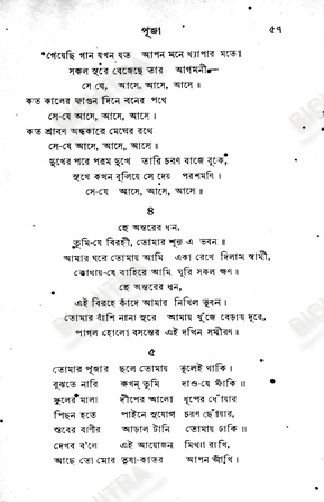 পূজা ৫৭
গেয়েছি গান যখন যত আপন মনে খ্যাপার মতো
সকল সুরে বেজেছে তার আগমনী—
সে যে, আসে, আসে, আসে ॥
কত কালের ফাগুন দিনে বনের পথে
সে-যে আসে, আসে, আসে।
কত শ্রাবণ অন্ধকারে মেঘের রথে
সে-যে আসে, আসে, আসে ॥
দুখের পরে পরম দুখে তারি চরণ বাজে বুকে,
সুখে কখন বুলিয়ে সে দেয় পরশমণি।
সে-যে আসে, আসে, আসে ॥
৪
হে অন্তরের ধন,
তুমি-যে বিরহী, তোমার শূন্য এ ভবন ॥
আমার ঘরে তোমায় আমি একা রেখে দিলাম স্বামী,
কোথায়-যে বাহিরে আমি ঘুরি সকল ক্ষণ ॥
হে অন্তরের ধন,
এই বিরহে কাঁদে আমার নিখিল ভুবন।
তোমার বাঁশি নানা সুরে আমায় খুঁজে বেড়ায় দূরে,
পাগল হোলো বসন্তের এই দখিন সমীরণ ॥
৫
তোমার পূজার ছলে তোমায় ভুলেই থাকি।
বুঝতে নারি কখন্ তুমি দাও-যে ফাঁকি ॥
ফুলের মালা দীপের আলো ধূপের ধোঁয়ার
পিছন হতে পাইনে সুযোগ চরণ ছোঁয়ার,
স্তবের বাণীর আড়াল টানি তোমায় ঢাকি ॥
দেখব ব'লে এই আয়োজন মিথ্যা রাখি,
আছে তো মোর তৃষা-কাতর আপন আঁখি।